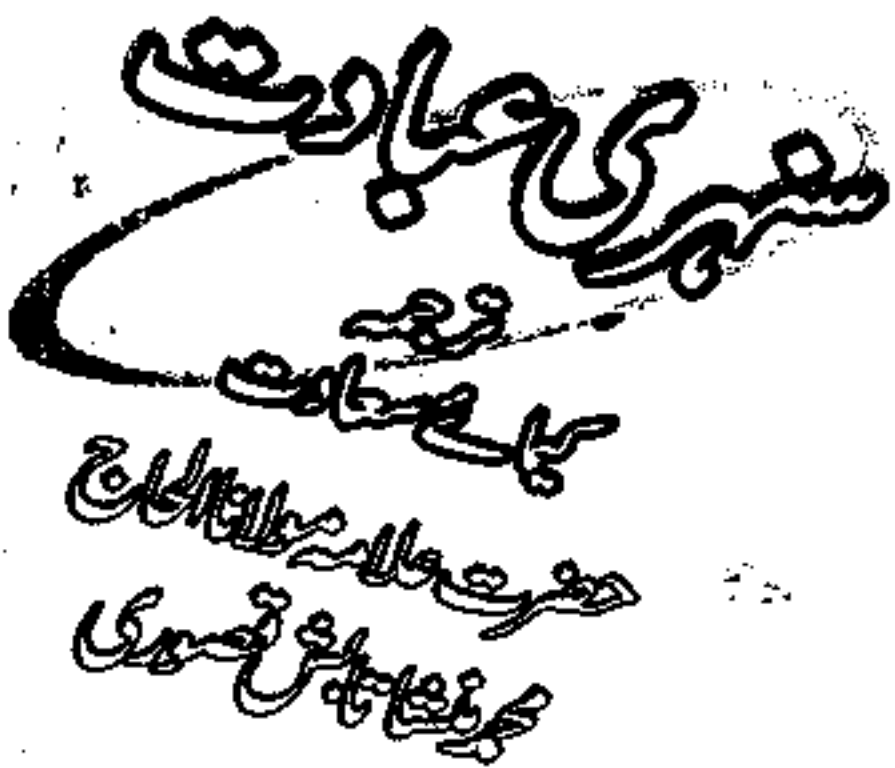 سنہری عبادت
ترجمہ
سعادت
حضرت علامہ مولانا الحاج
محمد منشا تابش قصوری